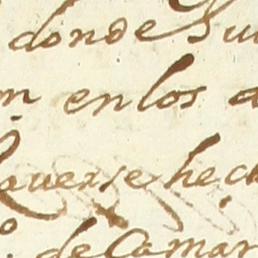 donde Su
n en los a
auerse hec
o. de Camar